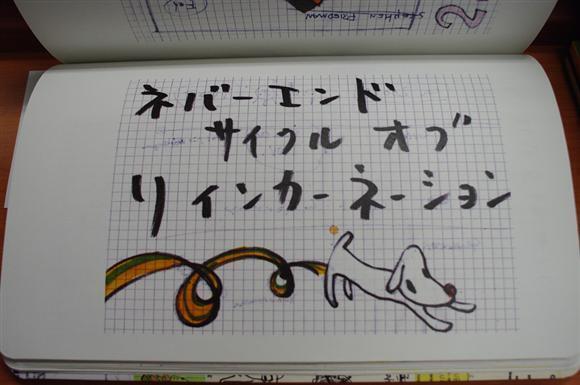 STEPHEN FRIEDMAN
ネバーエンド
サイクル オブ
リインカーネーション